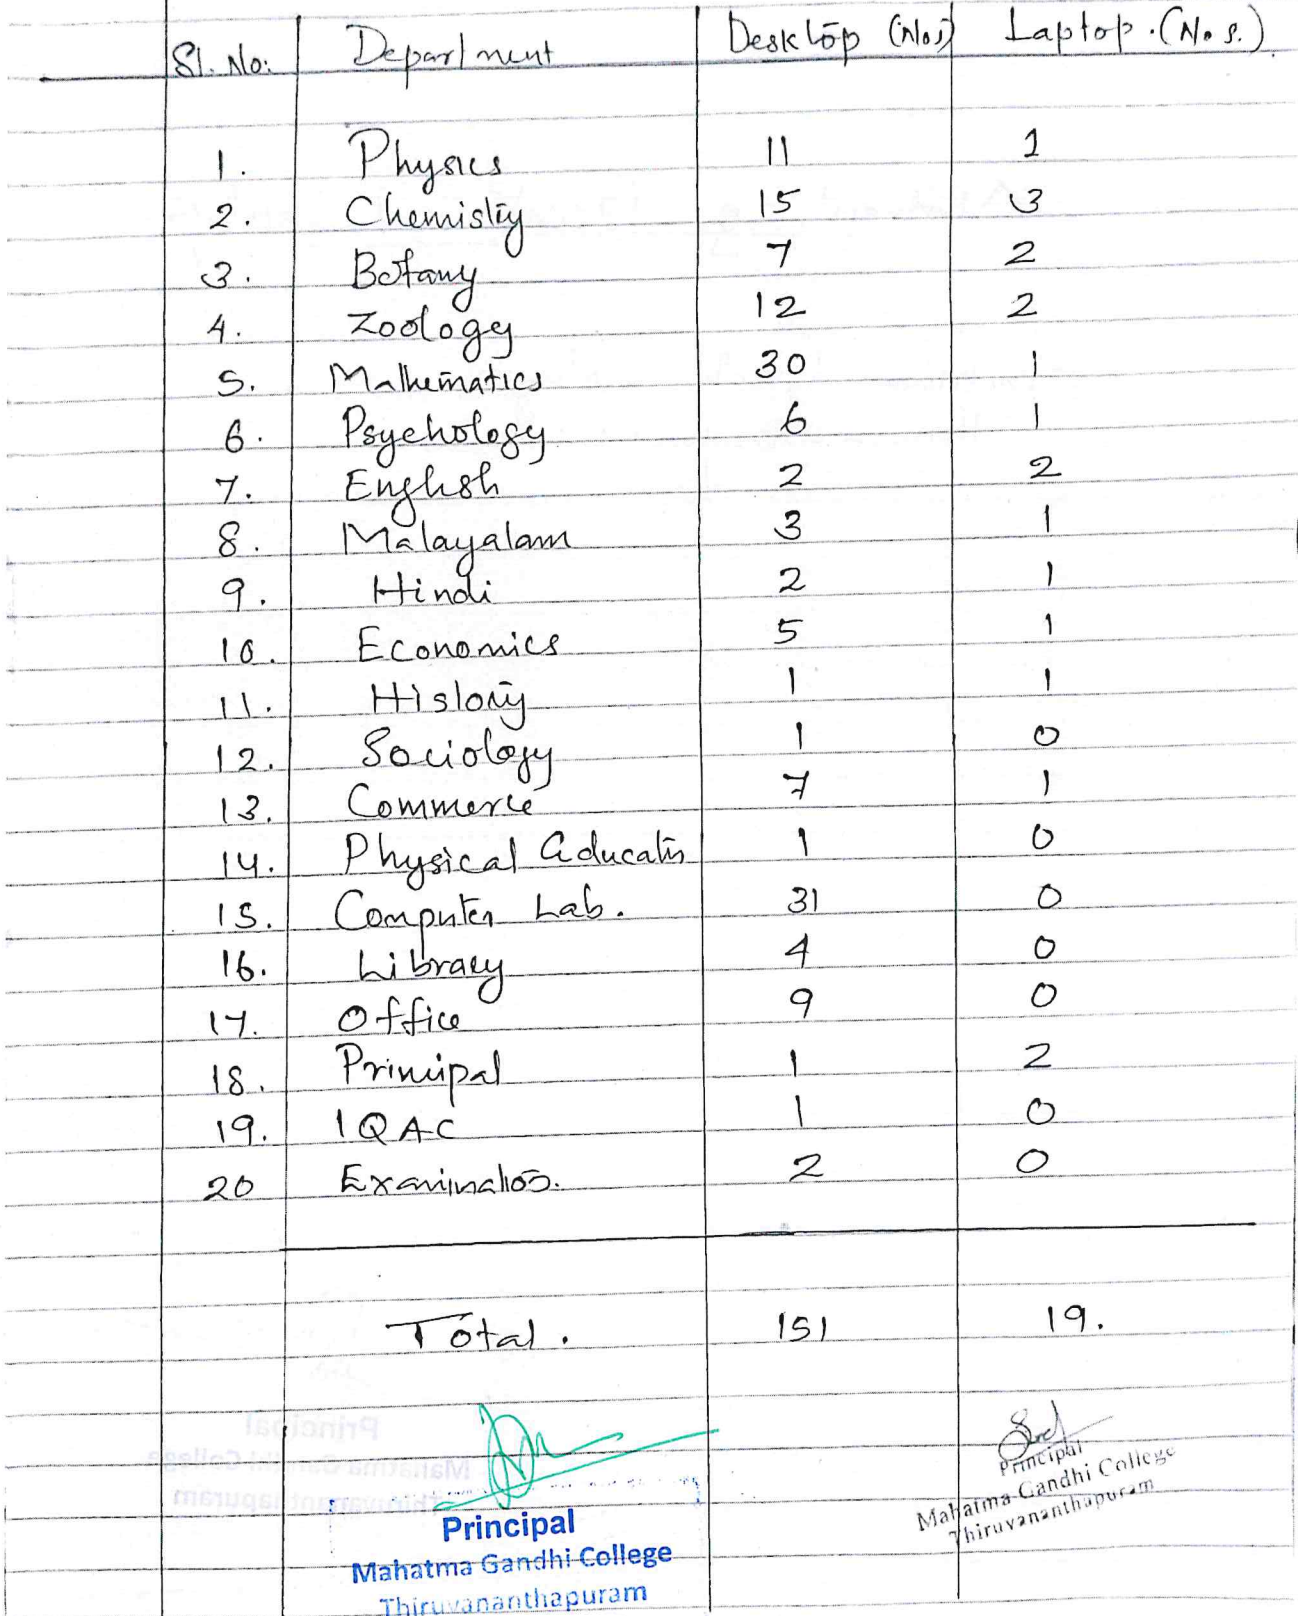 Sl. No. Department Desktop (Nos) Laptop. (Nos.)
1. Physics 11 1
2. Chemistry 15 3
3. Botany 7 2
4. Zoology 12 2
5. Mathematics 30 1
6. Psychology 6 1
7. English 2 2
8. Malayalam 3 1
9. Hindi 2 1
10. Economics 5 1
11. History 1 1
12. Sociology 1 0
13. Commerce 7 1
14. Physical Education 1 0
15. Computer Lab. 31 0
16. Library 4 0
17. Office 9 0
18. Principal 1 2
19. IQAC 1 0
20 Examination. 2 0
Total. 151 19.
Principal
Mahatma Gandhi College
Thiruvananthapuram
Principal
Mahatma Gandhi College
Thiruvananthapuram